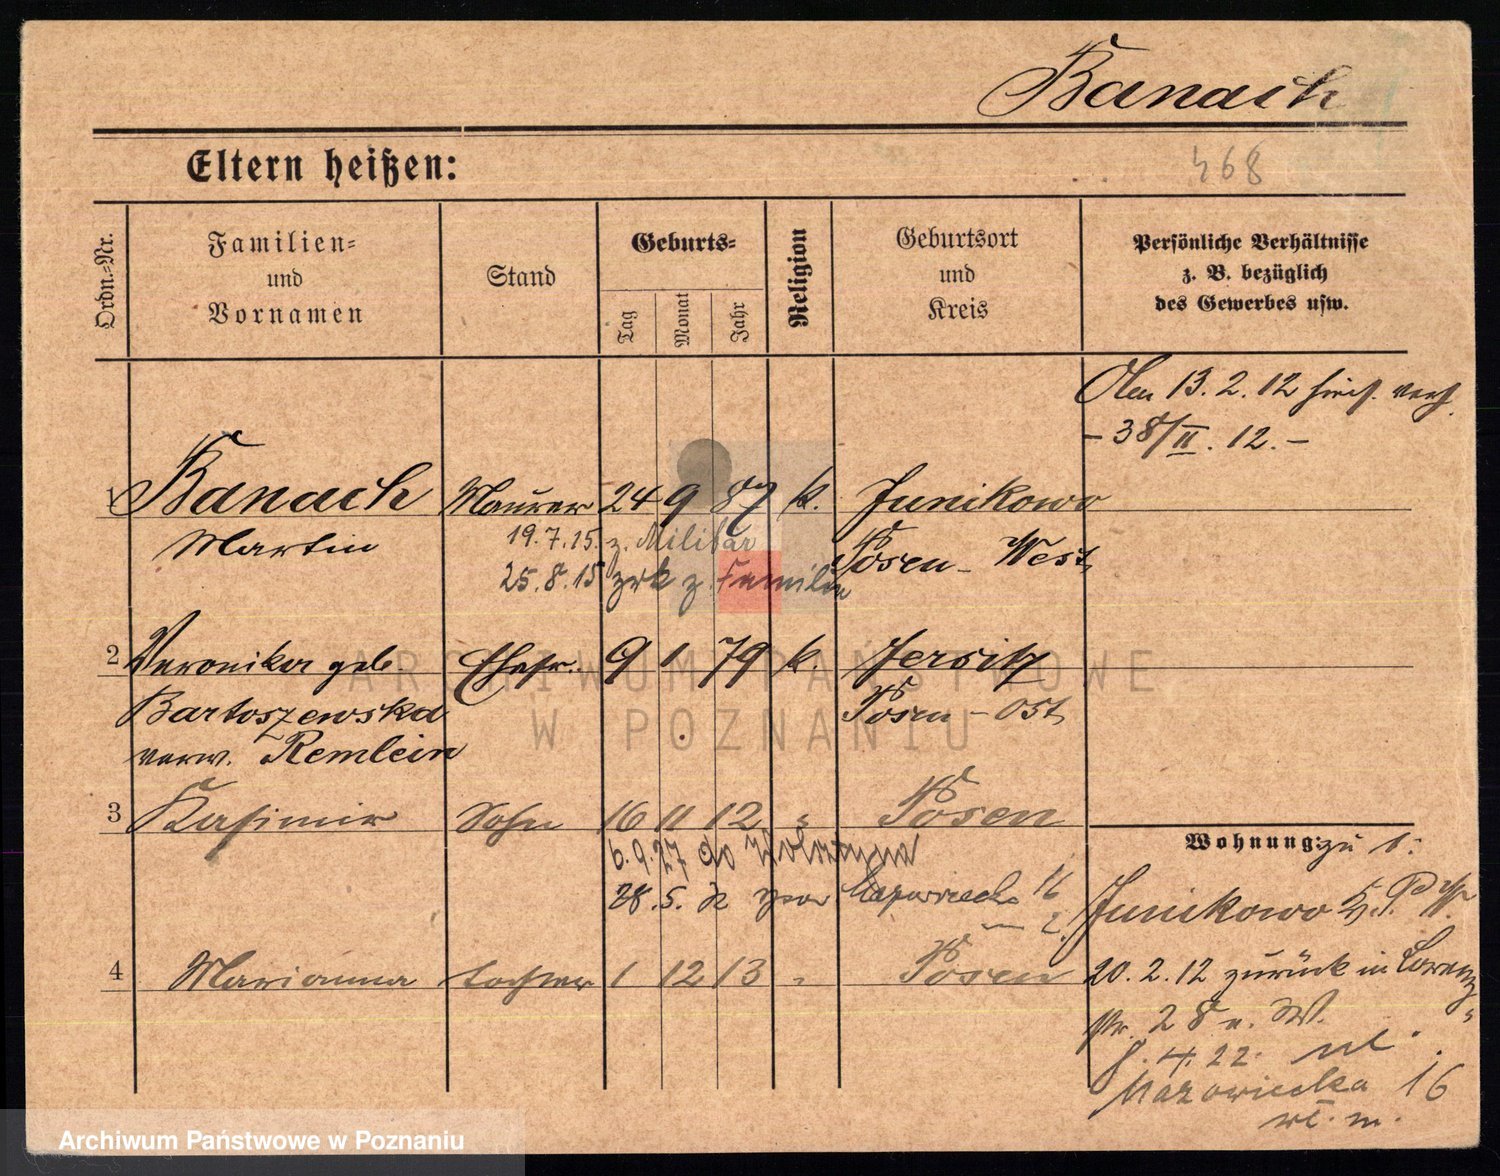 Banach
Eltern heißen:
468
Ordn.=Nr.
Familien=
und
Vornamen
Stand
Geburts=
Tag
Monat
Jahr
Religion
Geburtsort
und
Kreis
Persönliche Verhältnisse
z. B. bezüglich
des Gewerbes usw.
13. 2. 12
– 38/II. 12. –
1 Banach Maurer 24 9 87 k. Junikowo
Martin Posen – West
19.7.15. z. Militär
25.8.15 zrk z. Familie
2 Veronika geb Ehefr. 9 1 79 k. Jersitz
Bartoszewska Posen – Ost
verw. Remlein
3 Kasimir Sohn 16 11 12 " Posen
6.9.27 do
28.5.
4 Marianna Tochter 1 12 13 " Posen
Wohnung: zu 1.
Junikowo
20.2.12 zurück in Lorenz
str. 28 b. W.
4.22. ul.
Mazowiecka 16
ARCHIWUM PAŃSTWOWE
W POZNANIU
Archiwum Państwowe w Poznaniu